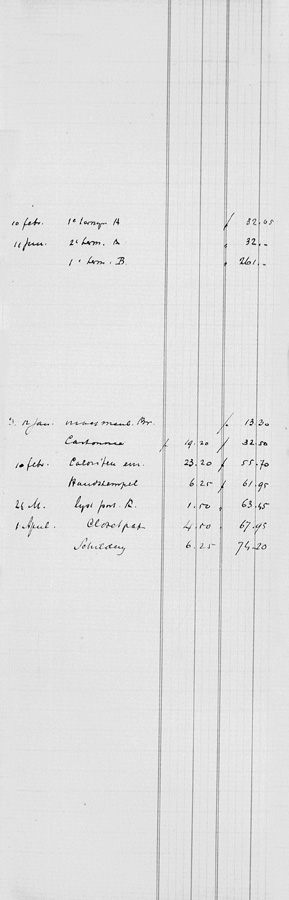 10 febr. 1e f 32.05
11 Jun. 2e term. A " 32.-
1e term. B. " 261.-
12 Jan. Br. f 13.30
Cartonnea f 19.20 f 32.50
10 febr. Calorifer em. 23.20 f 55.70
Handstempel 6.25 f 61.95
24 M. lyst port. R. 1.50 " 63.45
1 April. Closetpap 4.50 " 67.95
Schildery 6.25 74.20